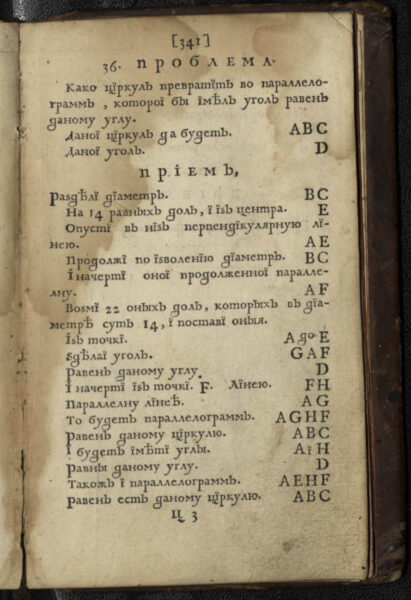 [341]
36. ПРОБЛЕМА.
Како цїркуль превратїть во параллело-
граммъ , которої бы їмѣлъ уголъ равенъ
даному углу.
Даної цїркуль да будетъ. ABC
Даної уголъ. D
ПРІЕМЪ,
Раздѣлї дїаметръ. BC
На 14 равныхъ доль, ї їзъ центра. E
Опустї въ нїзъ перпендїкулярную лї-
нею. AE
Продолжї по їзволенїю дїаметръ. BC
Ї начертї оної продолженної паралле-
лну. AF
Возмї 22 оныхъ доль, которыхъ въ дїа-
метрѣ суть 14, ї поставї оныя.
Їзъ точкї. A до E
Здѣлаї уголъ. GAF
Равенъ даному углу. D
Ї начертї їзъ точкї. F. Лїнею. FH
Параллелну лїнеѣ. AG
То будетъ параллелограммъ. AGHF
Равенъ даному цїркулю. ABC
Ї будетъ їмѣтї углы. A ї H
Равны даному углу. D
Такожъ ї параллелограммъ. AEHF
Равенъ есть даному цїркулю. ABC
Ц 3